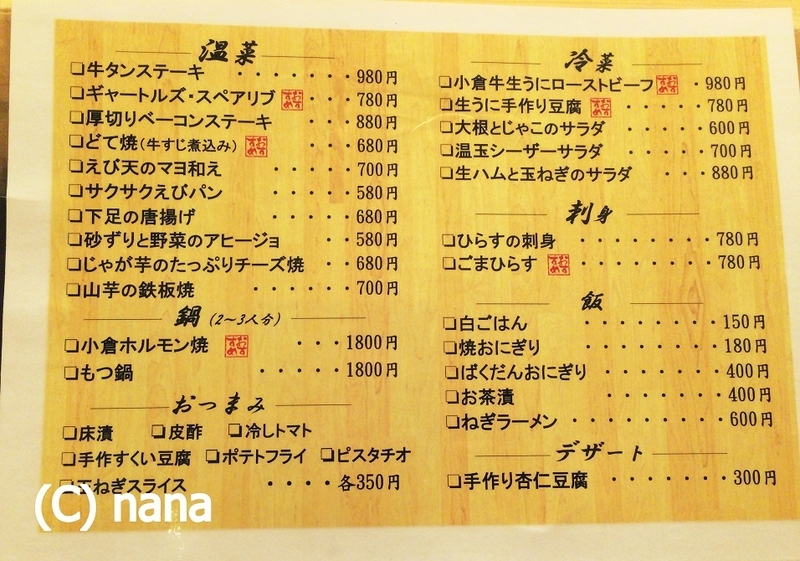 温菜
❏牛タンステーキ ・・・・・・・980円
❏ギャートルズ・スペアリブ おすすめ ・・・780円
❏厚切りベーコンステーキ ・・・880円
❏どて焼(牛すじ煮込み) おすすめ ・・・680円
❏えび天のマヨ和え ・・・・・700円
❏サクサクえびパン ・・・・・580円
❏下足の唐揚げ ・・・・・680円
❏砂ずりと野菜のアヒージョ ・・580円
❏じゃが芋のたっぷりチーズ焼 ・・680円
❏山芋の鉄板焼 ・・・・・・700円
鍋(2~3人分)
❏小倉ホルモン焼 おすすめ ・・・1800円
❏もつ鍋 ・・・・・1800円
おつまみ
❏床漬 ❏皮酢 ❏冷しトマト
❏手作すくい豆腐 ❏ポテトフライ ❏ピスタチオ
玉ねぎスライス ・・・・各350円
冷菜
❏小倉牛生うにローストビーフ おすすめ ・980円
❏生うに手作り豆腐 おすすめ ・・・・・780円
❏大根とじゃこのサラダ ・・・・・600円
❏温玉シーザーサラダ ・・・・・700円
❏生ハムと玉ねぎのサラダ ・・・880円
刺身
❏ひらすの刺身 ・・・・・・・・780円
❏ごまひらす おすすめ ・・・・・・・780円
飯
❏白ごはん ・・・・・・・・150円
❏焼おにぎり ・・・・・・・180円
❏ばくだんおにぎり ・・・・・・・400円
❏お茶漬 ・・・・・400円
❏ねぎラーメン ・・・・・・・・600円
デザート
❏手作り杏仁豆腐 ・・・・・・・300円
(C) nana